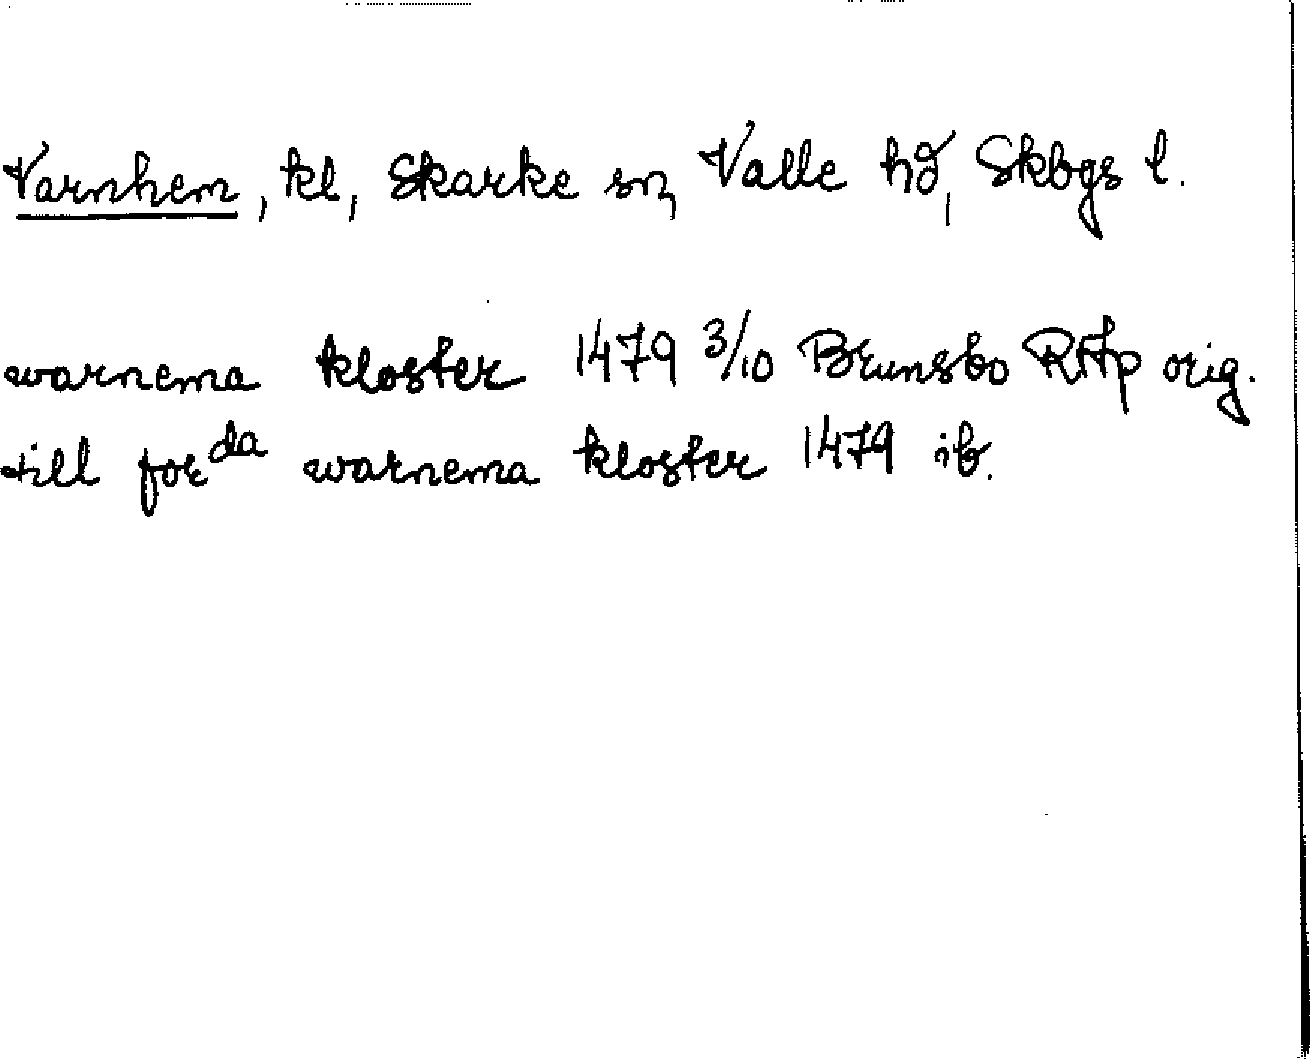 Varnhem, kl, Skarke sn, Valle hd, Skbgs l.
warnema kloster 1479 3/10 Brunsbo RAp orig.
till forda warnema kloster 1479 ib.